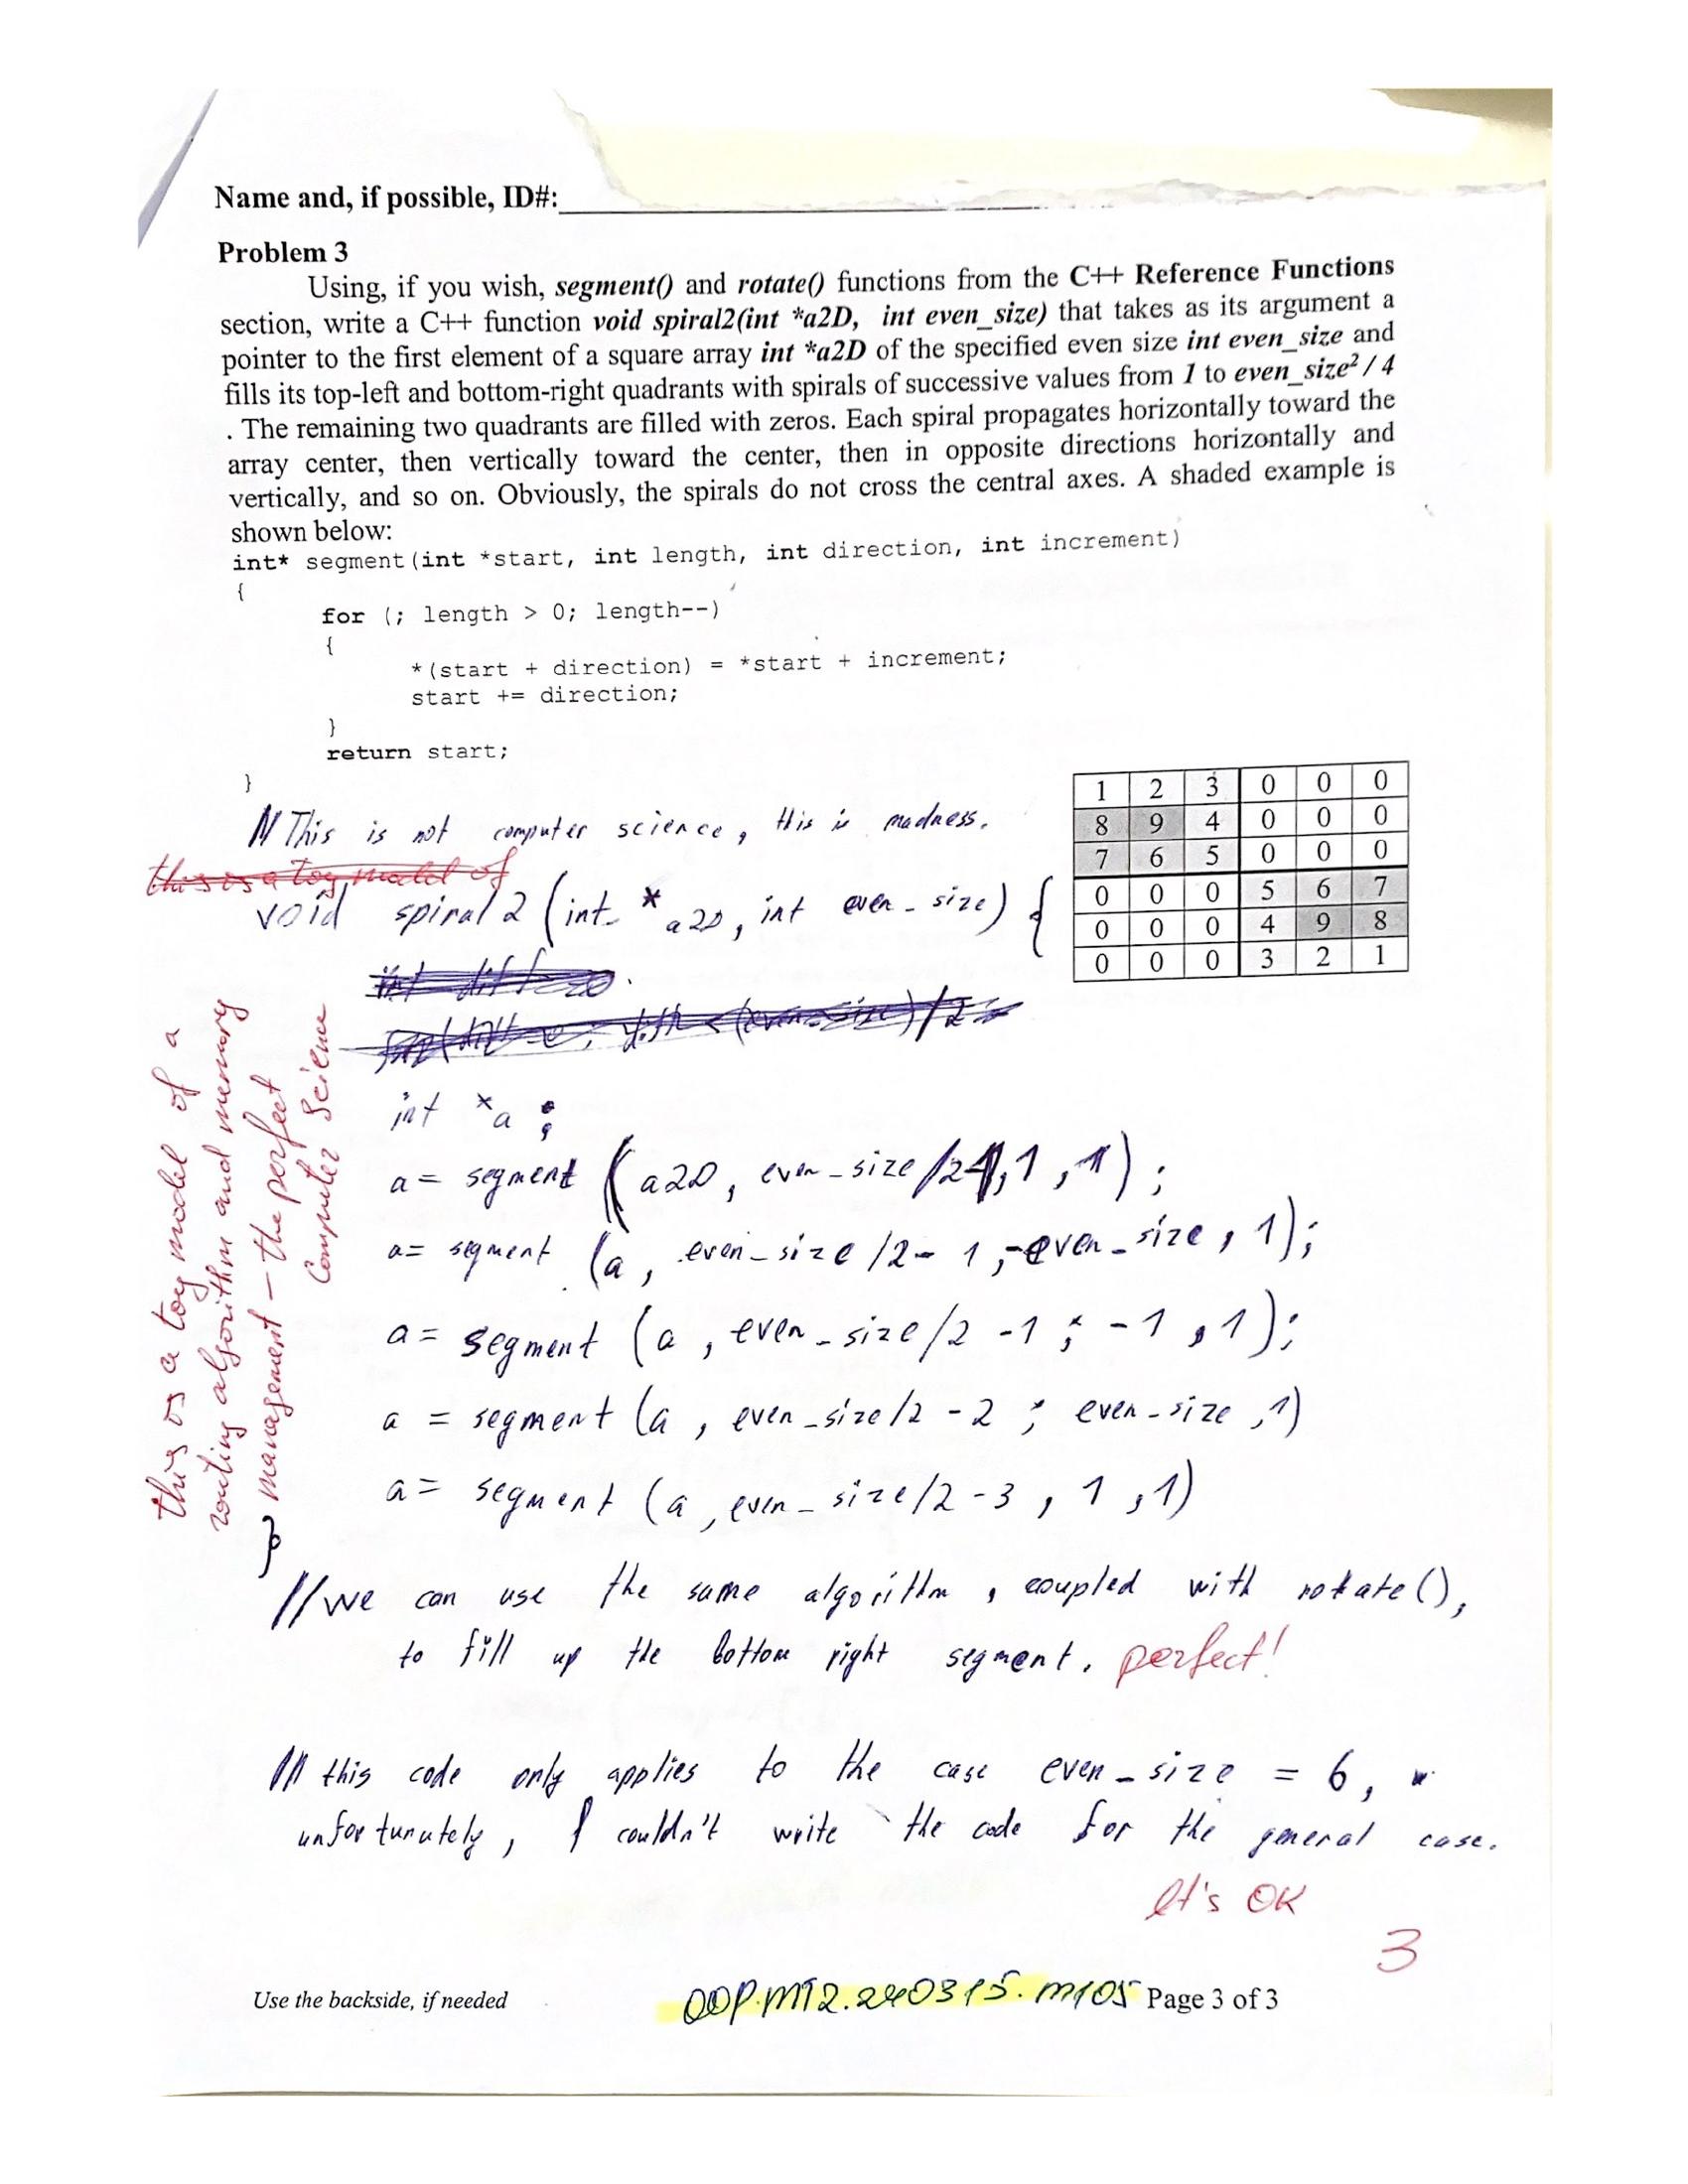 Name and, if possible, ID#:
Problem 3
Using, if you wish, segment() and rotate() functions from the C++ Reference Functions
section, write a C++ function void spiral2(int *a2D, int even_size) that takes as its argument a
pointer to the first element of a square array int *a2D of the specified even size int even_size and
fills its top-left and bottom-right quadrants with spirals of successive values from 1 to even_size² / 4
. The remaining two quadrants are filled with zeros. Each spiral propagates horizontally toward the
array center, then vertically toward the center, then in opposite directions horizontally and
vertically, and so on. Obviously, the spirals do not cross the central axes. A shaded example is
shown below:
int* segment(int *start, int length, int direction, int increment)
{
for (; length > 0; length--)
{
*(start + direction) = *start + increment;
start += direction;
}
return start;
}
1 2 3 0 0 0
8 9 4 0 0 0
7 6 5 0 0 0
0 0 0 5 6 7
0 0 0 4 9 8
0 0 0 3 2 1
// This is not computer science, this is madness.
this is a toy model of
void spiral2 (int * a2D, int even_size) {
int *a ;
a = segment (a2D, even_size/2-1, 1, 1);
a = segment (a, even_size/2- 1, -even_size, 1);
a = segment (a, even_size/2 -1 ; -1, 1);
a = segment (a, even_size/2 -2 ; even_size, 1)
a = segment (a, even_size/2-3, 1, 1)
}
this is a toy model of a
routing algorithm and memory
management – the perfect
Computer Science
// we can use the same algorithm, coupled with rotate(),
to fill up the bottom right segment. perfect!
// this code only applies to the case even_size = 6,
unfortunutely, I couldn't write the code for the general case.
It's OK
3
Use the backside, if needed
OOP.MT2.240315.M105 Page 3 of 3